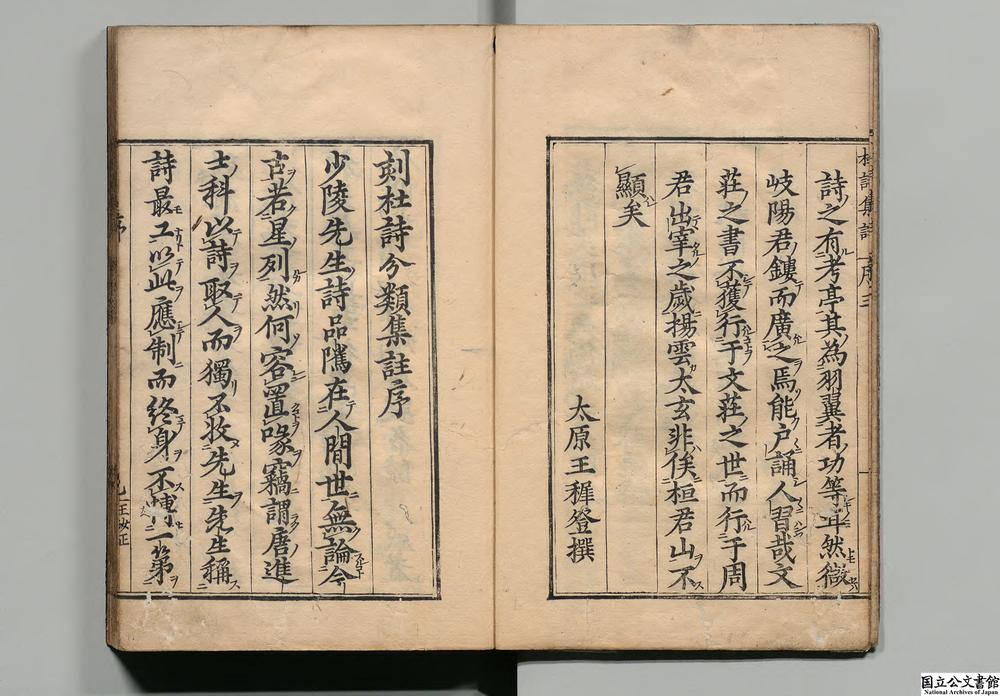 杜詩集註 序 三
詩之有考亭其為羽翼者功等耳然微
岐陽君鏤而廣之焉能户誦人習哉文
莊之書不獲行于文莊之世而行于周
君出宰之歲揚雲太玄非俟桓君山不
顯矣
太原王穉登撰
刻杜詩分類集註序
少陵先生詩品隲在人間世無論今
古若星列然何容置喙竊謂唐進
士科以詩取人而獨不收先生先生稱
詩最工以此應制而終身不博一第
序
国立公文書館
National Archives of Japan